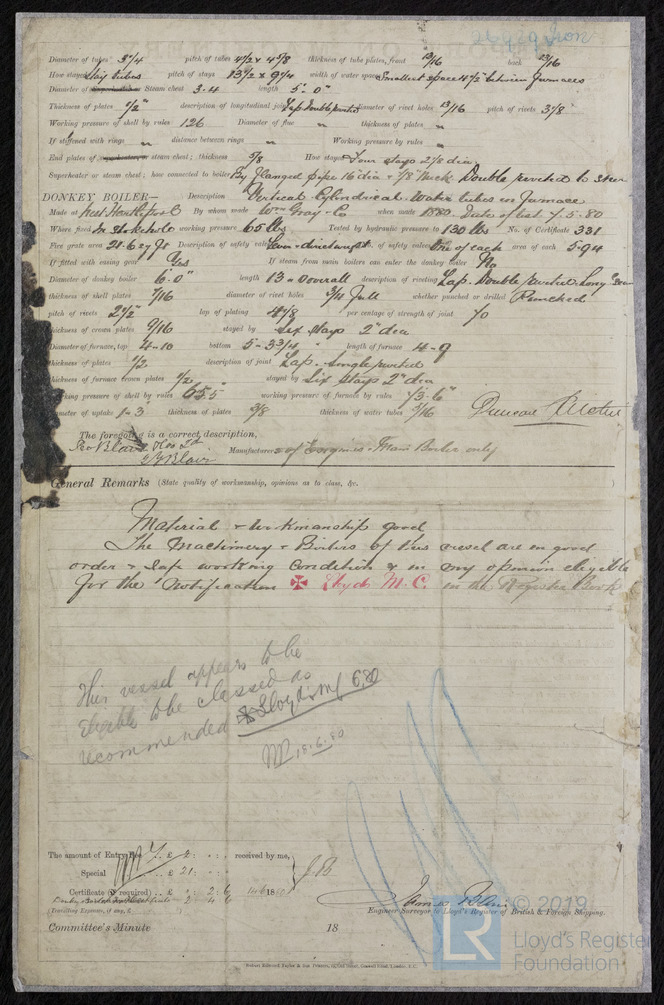 26929 Iron
Diameter of tubes 3 1/4 pitch of tubes 4 1/2 x 4 5/8 thickness of tube plates, front 13/16 back 13/16
How stayed Stay tubes pitch of stays 13 1/2 x 9 1/4 width of water spaces Smallest space 4 1/2" between furnaces
Diameter of Steam chest 3-4 length 5'-0"
Thickness of plates 1/2" description of longitudinal joint Lap Double riveted diameter of rivet holes 13/16 pitch of rivets 3 1/8"
Working pressure of shell by rules 126 Diameter of flue " thickness of plates "
If stiffened with rings " distance between rings " Working pressure by rules "
End plates of steam chest; thickness 5/8 How stayed Four stays 2 1/8 dia
Superheater or steam chest; how connected to boiler By flanged pipe 16" dia + 7/8" thick. Double riveted to
DONKEY BOILER— Description Vertical Cylindrical. Water tubes in furnace
Made at West Hartlepool By whom made Wm Gray & Co when made 1880. Date of test 7.5.80
Where fixed In Stokehole working pressure 65 lbs Tested by hydraulic pressure to 130 lbs No. of Certificate 331
Fire grate area 21.6 sq ft Description of safety valves Lever & direct No. of safety valves One of each area of each 5.94
If fitted with easing gear Yes If steam from main boilers can enter the donkey boiler No
Diameter of donkey boiler 6'-0" length 13-0 overall description of riveting Lap. Double riveted. Long
thickness of shell plates 7/16 diameter of rivet holes 3/4 full whether punched or drilled Punched
pitch of rivets 2 1/2" lap of plating 4 1/8 per centage of strength of joint 70
thickness of crown plates 9/16 stayed by Six stays 2" dia
Diameter of furnace, top 4-10 bottom 5-3 3/4 length of furnace 4-9
thickness of plates 1/2 description of joint Lap. Single riveted
thickness of furnace crown plates 1/2 " stayed by Six stays 2" dia
Working pressure of shell by rules 65.5 working pressure of furnace by rules
diameter of uptake 1-3 thickness of plates 3/8 thickness of water tubes 5/16
Duncan
The foregoing is a correct description,
Geo Blair
G Y Blair Manufacturer of Engines & Main Boiler only
General Remarks (State quality of workmanship, opinions as to class, &c.
Material & Workmanship good
The Machinery & Boilers of this vessel are in good
order & safe working condition & in my opinion eligible
for the notification ✠ Lloyds M.C. in the Register Book
This vessel appears to be
eligible to be classed as
recommended ✠ Lloyds MC 6.80
18.6.80
The amount of Entry Fee £ 2 : " : " received by me,
Special £ 21 : " : "
Certificate (if required) £ " : 2 : 6 18
2 4 6
(Travelling Expenses, if any, £ )
James Blair
Engineer Surveyor to Lloyd's Register of British & Foreign Shipping.
Committee's Minute 18
© 2019
LR
Lloyd's Register
Foundation